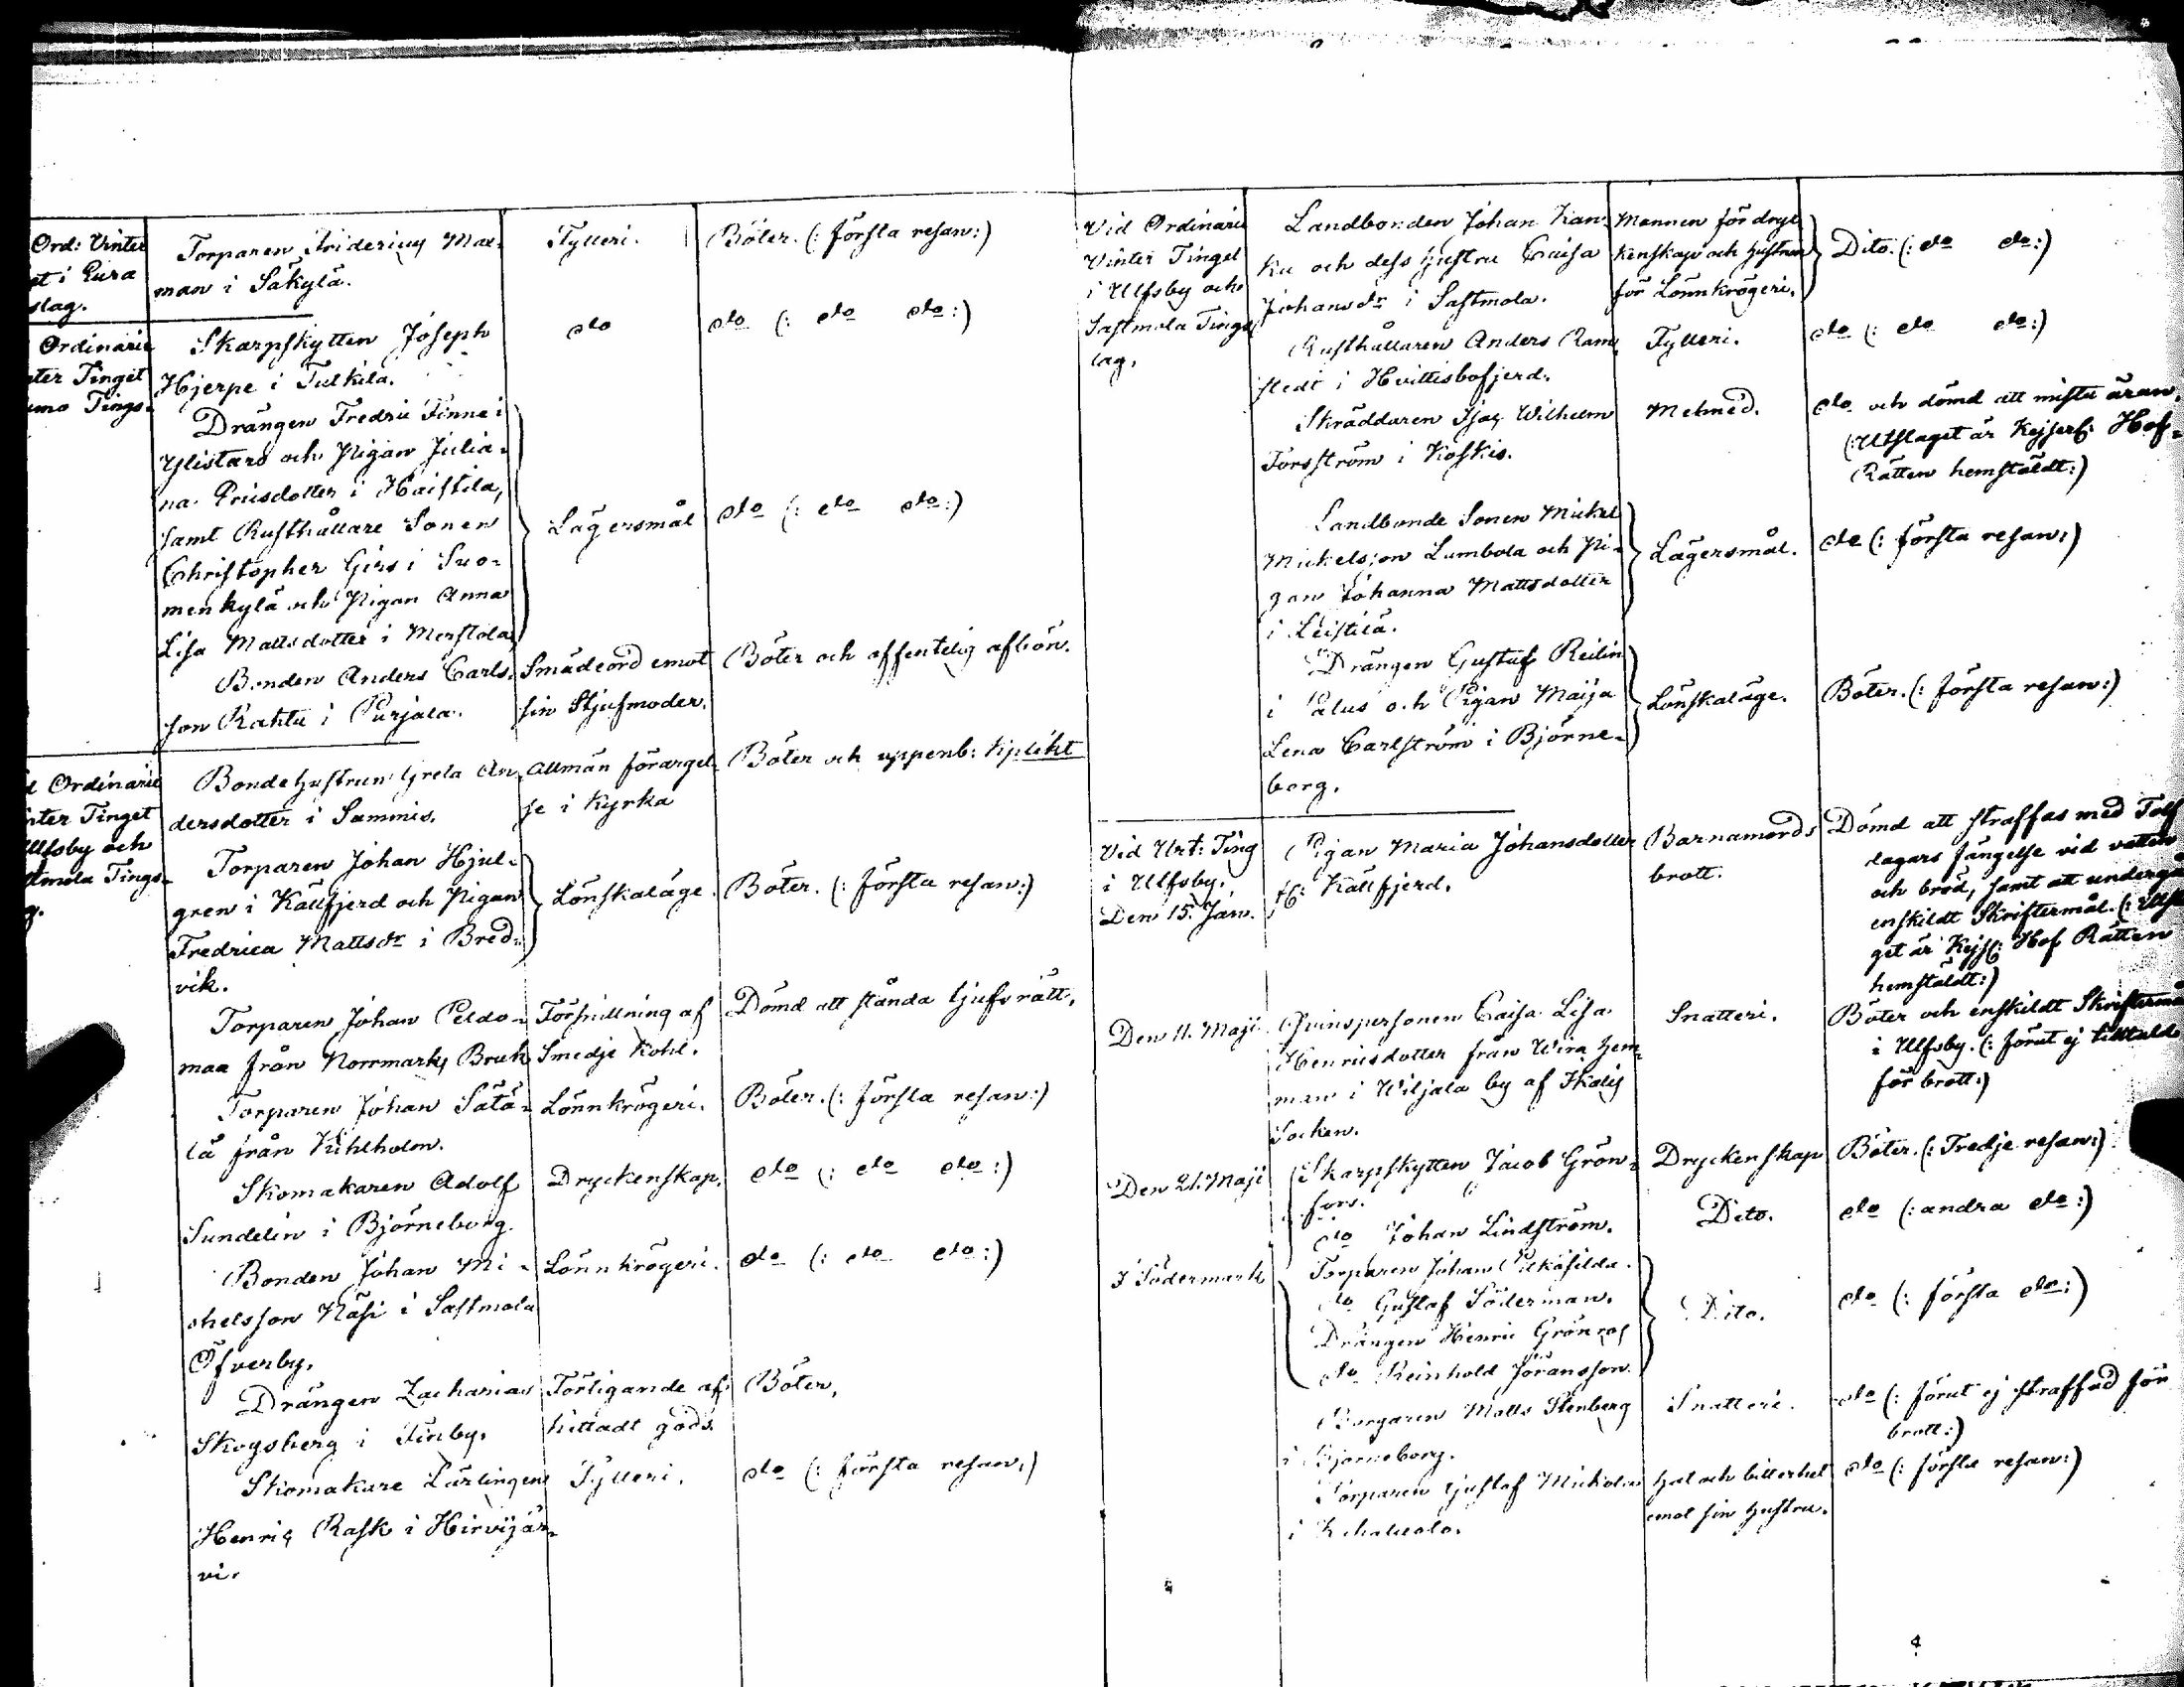 Ord: Vinter
et i Eura
slag.
Torparen Fridericus Mat-
man i Säkylä.
Fylleri.
Böter. (: första resan:)
Ordinarie
nter Tinget
umo Tings-
Skarpskytten Joseph
Hjerpe i Tulkila.
do
do (: do do:)
Drängen Fredric Finne i
Ylistaro och Pigan Julia-
na Ericsdotter i Haistila,
samt Rusthållare Sonen
Christopher Girs i Suo-
menkylä och Pigan Anna
Lisa Mattsdotter i Merstola
Lägersmål
do (: do do:)
Bonden Anders Carls-
son Rahtu i Purjala.
Smädeord emot
sin Stjufmoder.
Böter och offentelig afbön.
d Ordinarie
inter Tinget
Ulfsby och
stmola Tings-
g.
Bondehustrun Greta An-
dersdotter i Sammis.
Allmän förargel-
se i Kyrka
Böter och uppenb: Kplikt
Torparen Johan Hjul-
gren i Källfjerd och Pigan
Fredrica Mattsdr i Bred-
vik.
Lönskaläge.
Böter. (: första resan:)
Torparen Johan Peldo-
maa från Norrmarks Bruk
Förskillning af
Smedje Kohl.
Dömd att stånda tjufs rätt.
Torparen Johan Sätä-
lä från Kihlholm.
Lönnkrögeri.
Böter. (: första resan:)
Skomakaren Adolf
Sundelin i Björneborg.
Dryckenskap.
do (: do do:)
Bonden Johan Mi-
chelsson Näsi i Sastmola
Öfverby.
Lönnkrögeri.
do (: do do:)
Drängen Zacharias
Skogsberg i Finby.
Förtigande af
hittadt gods.
Böter.
Skomakare Lärlingen
Henric Rask i Hirvijär-
vi.
Fylleri.
do (: första resan:)
Vid Ordinarie
Vinter Tinget
i Ulfsby och
Sastmola Tings
lag.
Landbonden Johan Kan-
ku och dess hustru Caisa
Johansdr i Sastmola.
Mannen för dryc
kenskap och hustrun
för Lönnkrögeri.
Dito. (: do do:)
Rusthållaren Anders Ram-
stedt i Hvittisbofjerd.
Fylleri.
do (: do do:)
Skräddaren Isac Wilhelm
Forsström i Koskis.
Mened.
do och dömd att mista äran.
(: Utslaget är Kejserl: Hof-
Rätten hemstäldt:)
Landbonde Sonen Mickel
Mickelsson Lumbola och Pi-
gan Johanna Mattsdotter
i Leistilä.
Lägersmål.
do (: första resan:)
Drängen Gustaf Reilin
i Pålus och Pigan Maija
Lena Carlström i Björne-
borg.
Lönskaläge.
Böter. (: första resan:)
Vid Urt: Ting
i Ulfsby.
Den 15. Jan.
Pigan Maria Johansdotter
fr: Källfjerd.
Barnamords
brott.
Dömd att straffas med Tolf
dagars fängelse vid vatten
och bröd, samt att undergå
enskildt Skriftermål. (: Utsla
get är Kejs: Hof Rätten
hemstäldt:)
Den 11. Maji
Qvinspersonen Caisa Lisa
Henricsdotter från Wira hem
man i Wiljala by af Ikalis
Socken.
Snatteri.
Böter och enskildt Skriftermå
i Ulfsby. (: förut ej tilltald
för brott:)
Den 21. Maji
Skarpskytten Jacob Grön-
fors.
Dryckenskap
Böter. (: Tredje resan:)
do Johan Lindström.
Dito.
do (: andra do:)
I Södermark
Torparen Johan
do Gustaf Söderman.
Drängen Henric Grönros
do Reinhold Jöransson.
Dito.
do (: första do:)
Borgaren Matts Stenberg
i Björneborg.
Snatteri.
do (: förut ej straffad för
brott:)
Torparen Gustaf
i
hat och bitterhet
emot sin hustru.
do (: första resan:)